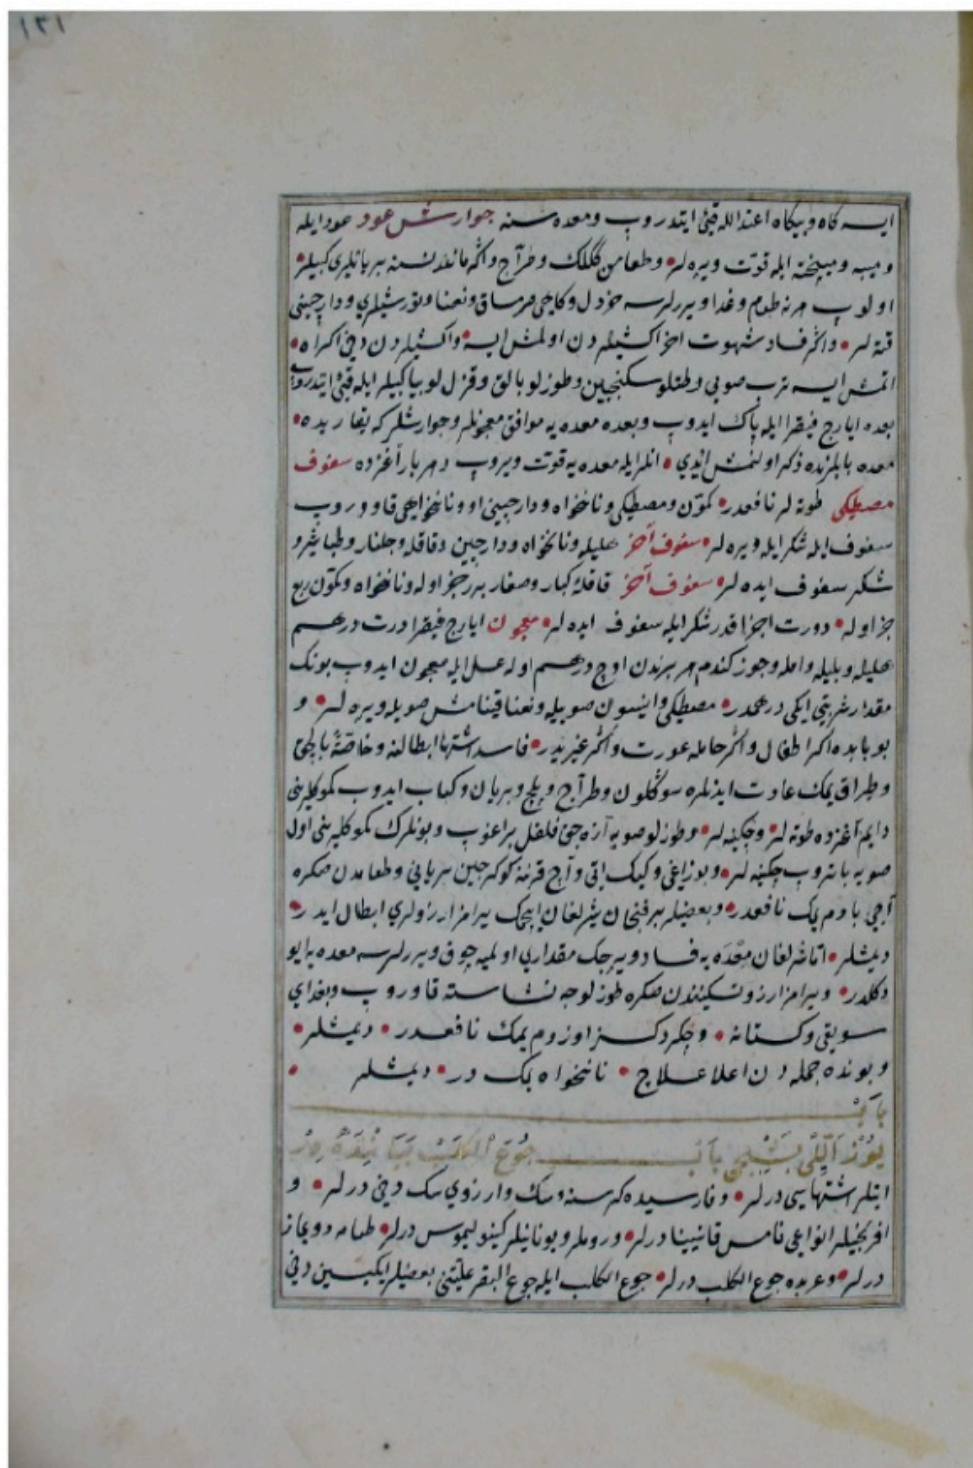 ١٣١
ايسه كاه و بيكاه اعتدالله قيئ ايتدروب ومعده سنه جوارش عود عود ايله
وميبه وميپخته ايله قوّت ويره لر وطعامن ككلك وطرآج واكه مانند نسنه بريانلري كبيلر
اولوب هرنه طوم وغدا ويررلرسه خردل وكامخى ونعنا وتورشيلري ودارچينى
قته لر واكر فساد شهوت اخر اكشيلردن اولمش ايسه واكشيلردن دخى اكراه
اتمش ايسه ترب صويى وطتلو سكنجبين وطوزلو بالق وقزل لوبيا كبيلر ايله قيئ ايتدروب
بعده ايارج فيقرا ايله پاك ايدوب وبعده معده يه موافق معجونلر وجوارشلر كه يقاريده
معده بابلرنده ذكر اولنمش ايدي انلر ايله معده يه قوّت ويروب وهر بار آغزده سفوف
مصطكى طوته لر نافعدر كمّون ومصطكى ونانخواه ودارچينى اوونانخواجى قاووروب
سفوف ايله شكر ايله ويره لر سفوف آخر هليله ونانخواه ودارچين وقاقله وجلنار وطباشر و
شكر سفوف ايده لر سفوف آخر قاقلۀ كبار وصغار برر جز اوله ونانخواه وكمّون ربع
جز اوله دورت اجزا قدر شكر ايله سفوف ايده لر معجون ايارج فيقرا درت درهم
هليله وبليله وامله وجوز كندم هر برندن اوچ درهم اوله عسل ايله معجون ايدوب بونك
مقدار شربتى ايكى درهمدر مصطكى وانيسون صويله ونعنا قينامش صويله ويره لر و
بو بابده اكر اطفال واكر حامله عورت واكر غيريدر فاسد اشتها ابطالنه وخاصّة بالچق
وطپراق يمك عادت ايدنلره سوكلون وطرآج وپلچ وبريان وكباب ايدوب كموكلرينى
دايم آغزده طوته لر وچكينه لر وطوزلو صويه آزه جق فلفل براغوب وبونلرك كموكلرينى اول
صويه باتروب چكينه لر وبوزاغى وكيك اتى وآج قرننه كوكرجين بريانى وطعامدن صكره
آجى بادم يمك نافعدر وبعضيلر بر فنجان شرلغان ايچمك يرامز ارزولرى ابطال ايدر
ديمشلر اما شرلغان معدَه يه فساد ويره جك مقدارى اولميه چوق ويررلرسه معده يه ايو
دكلدر ويرامز ارزو تسكينندن صكره طوزلوجه نشاسته قاوروب وبغداي
سويقى وكستانه وچكردكسز اوزوم يمك نافعدر ديمشلر
وبونده جمله دن اعلا علاج نانخواه بك در ديمشلر
باب
يوز اللى بشنجى باب جوع الكلب بياننده در
ايتلر اشتهاسى درلر وفارسيده كرسنه سك وارزوى سك دخى درلر و
افرنجيلر انواعى فامس قانينا درلر وروملر ويونانيلر كينوليموس درلر طمامه دويماز
درلر وعربده جوع الكلب درلر جوع الكلب ايله جوع البقر علّتنى بعضيلر ايكيسين دخى